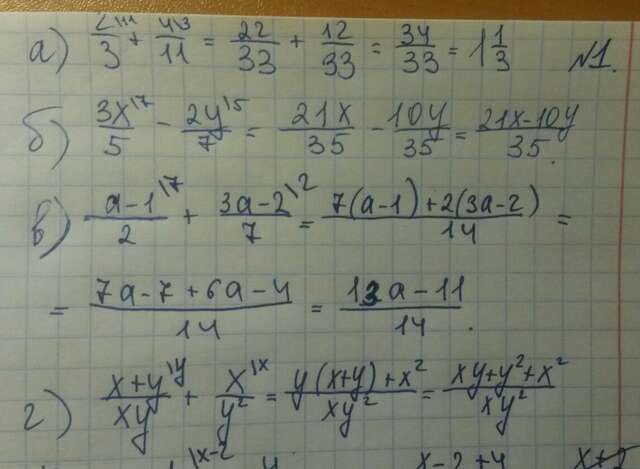 а) 2\11/3 + 4\3/11 = 22/33 + 12/33 = 34/33 = 1 1/3 №1.
б) 3x\7/5 - 2y\5/7 = 21x/35 - 10y/35 = 21x-10y/35.
в) a-1\7/2 + 3a-2\2/7 = 7(a-1)+2(3a-2)/14 =
= 7a-7+6a-4/14 = 13a-11/14.
г) x+y\y/xy + x\x/y² = y(x+y)+x²/xy² = xy+y²+x²/xy²